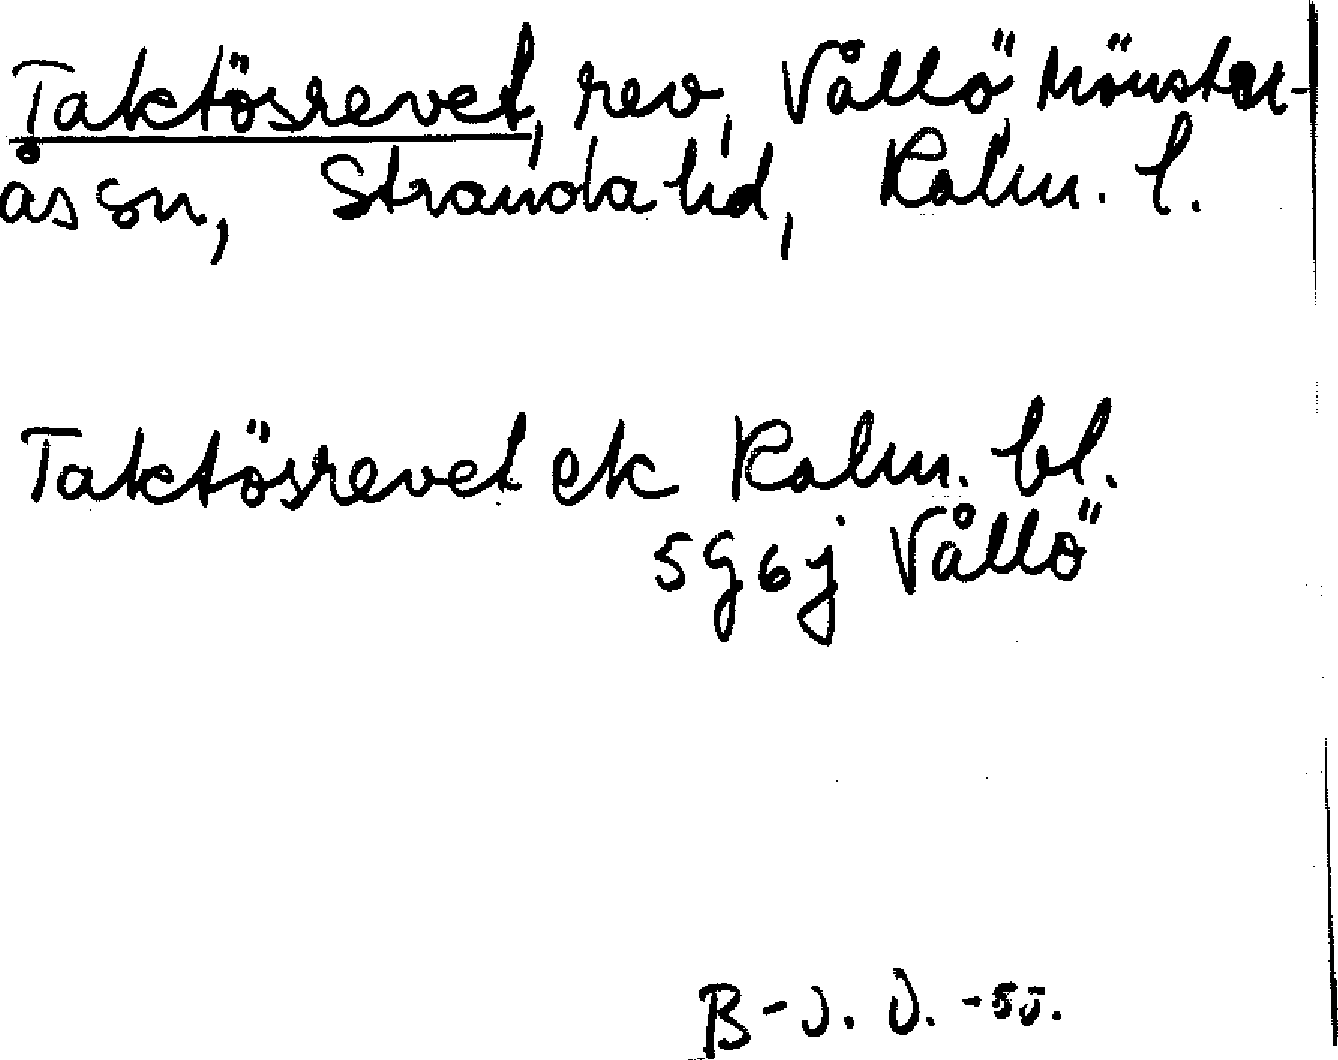 Taktösrevet, rev, Vållö Mönster-
ås sn, Stranda hd, Kalm. l.
Taktösrevet ek Kalm. bl.
5g6j Vållö
B-J. O.